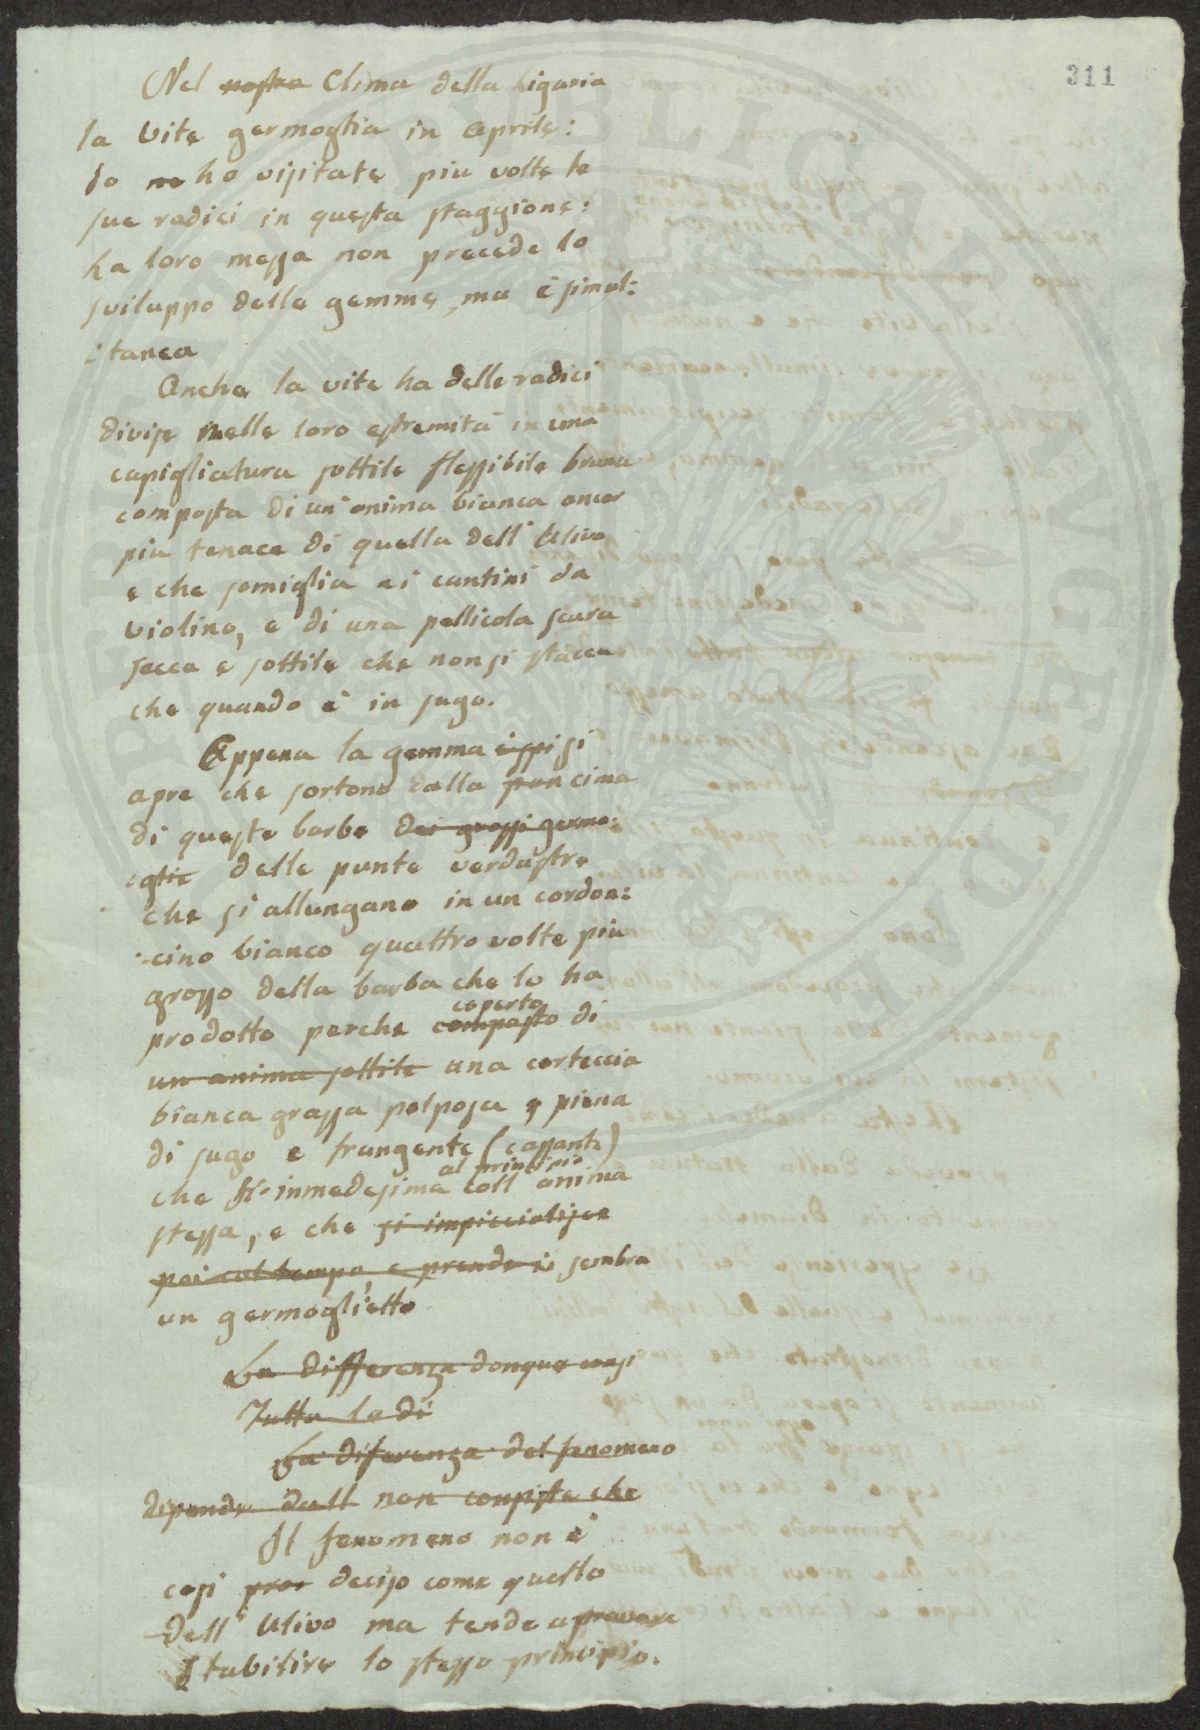 311
Nel nostro Clima della Liguria
la Vite germoglia in Aprile:
Io ne ho visitate piu volte le
sue radici in questa staggione:
La loro messa non precede lo
sviluppo delle gemme, ma è simul:
:tanea
Anche la vite ha delle radici
divise nelle loro estremità in una
capigliatura sottile flessibile bruna
composta di un'anima bianca ancor
piu tenace di quella dell'Ulivo
e che somiglia ai cantini da
violino, e di una pellicola scura
secca e sottile che non si stacca
che quando è in sugo.
Appena la gemma si
apre che sortono dalla cima
di queste barbe dei grossi germo:
:glie delle punte verdastre
che si allungano in un cordon:
:cino bianco quattro volte piu
grosso della barba che lo ha
coperto
prodotto perche composto di
un anima sottile una corteccia
bianca grassa polposa e piena
di sugo e frangente (cassante)
al principio
che s'inmedesima coll'anima
stessa, e che si impicciolisce
poi col tempo, e prende sembra
un germoglietto
La differenza donque
Tutta la di
La diferenza del fenomeno
dipende dall non consiste che
Il fenomeno non è
cosi deciso come quello
dell'Ulivo ma tende a provare
stabilire lo stesso principio.